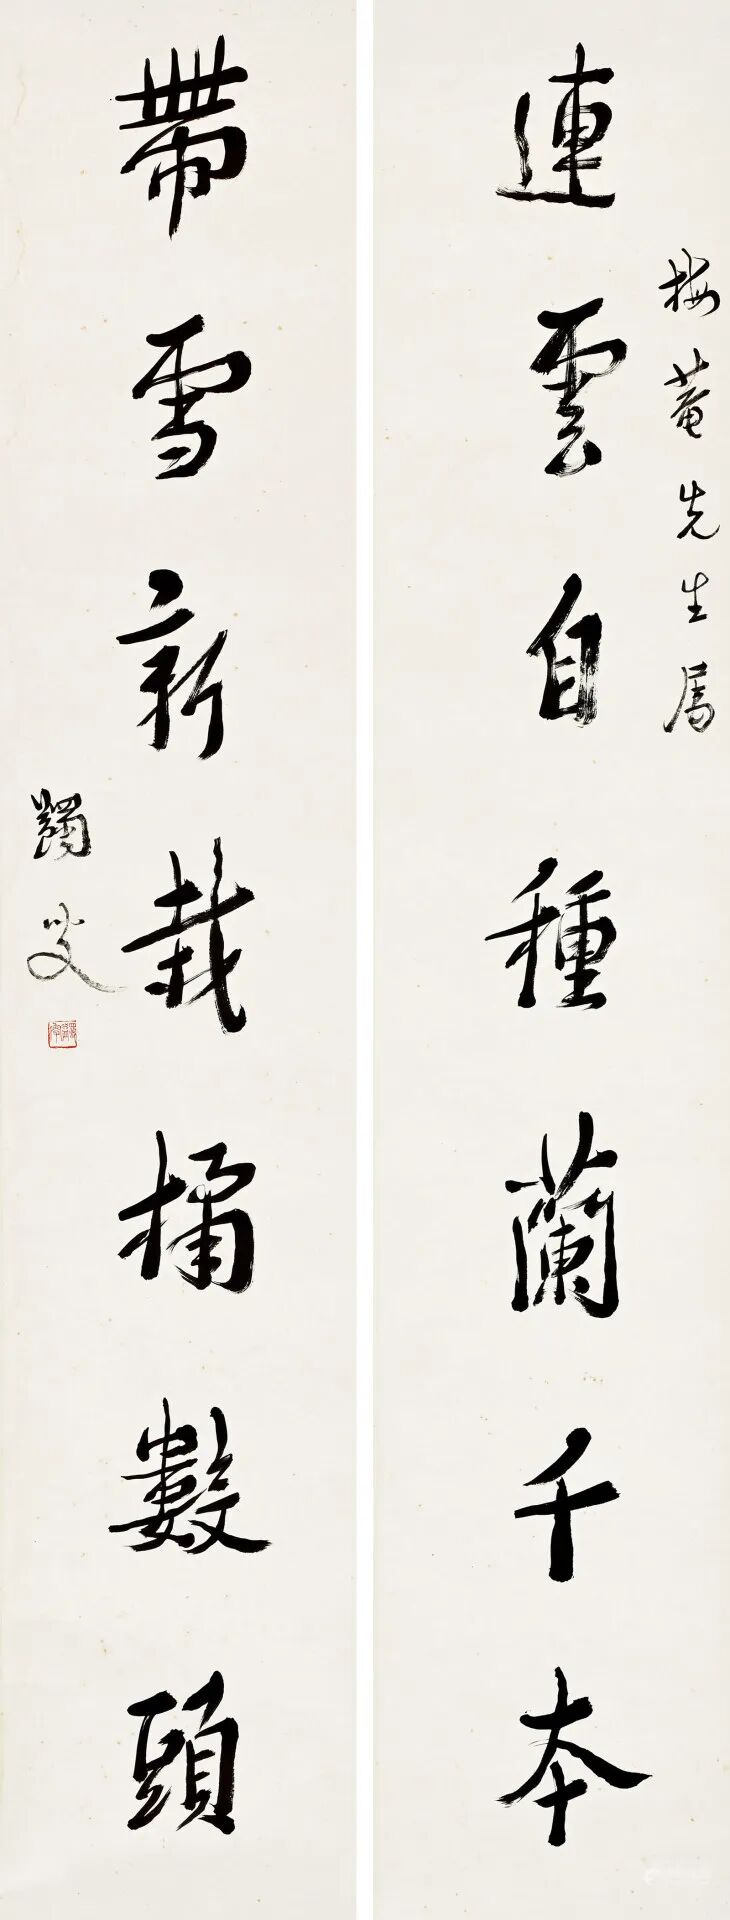 連雲自種蘭千本
梅菴先生属
帶雪新栽橘數頭
蠲叟